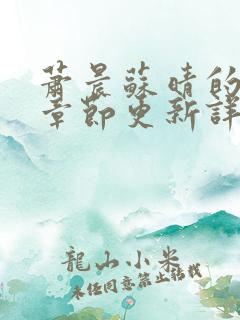 蕭晨蘇晴的
章節更新詳
龍山小米
未經同意禁止轉載